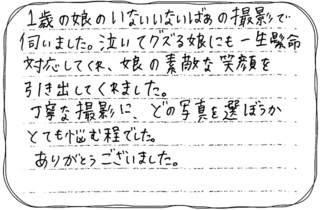 1歳の娘のいないいないばあの撮影で
伺いました。泣いてグズる娘にも一生懸命
対応してくれ、娘の素敵な笑顔を
引き出してくれました。
丁寧な撮影に、どの写真を選ぼうか
とても悩む程でした。
ありがとうございました。